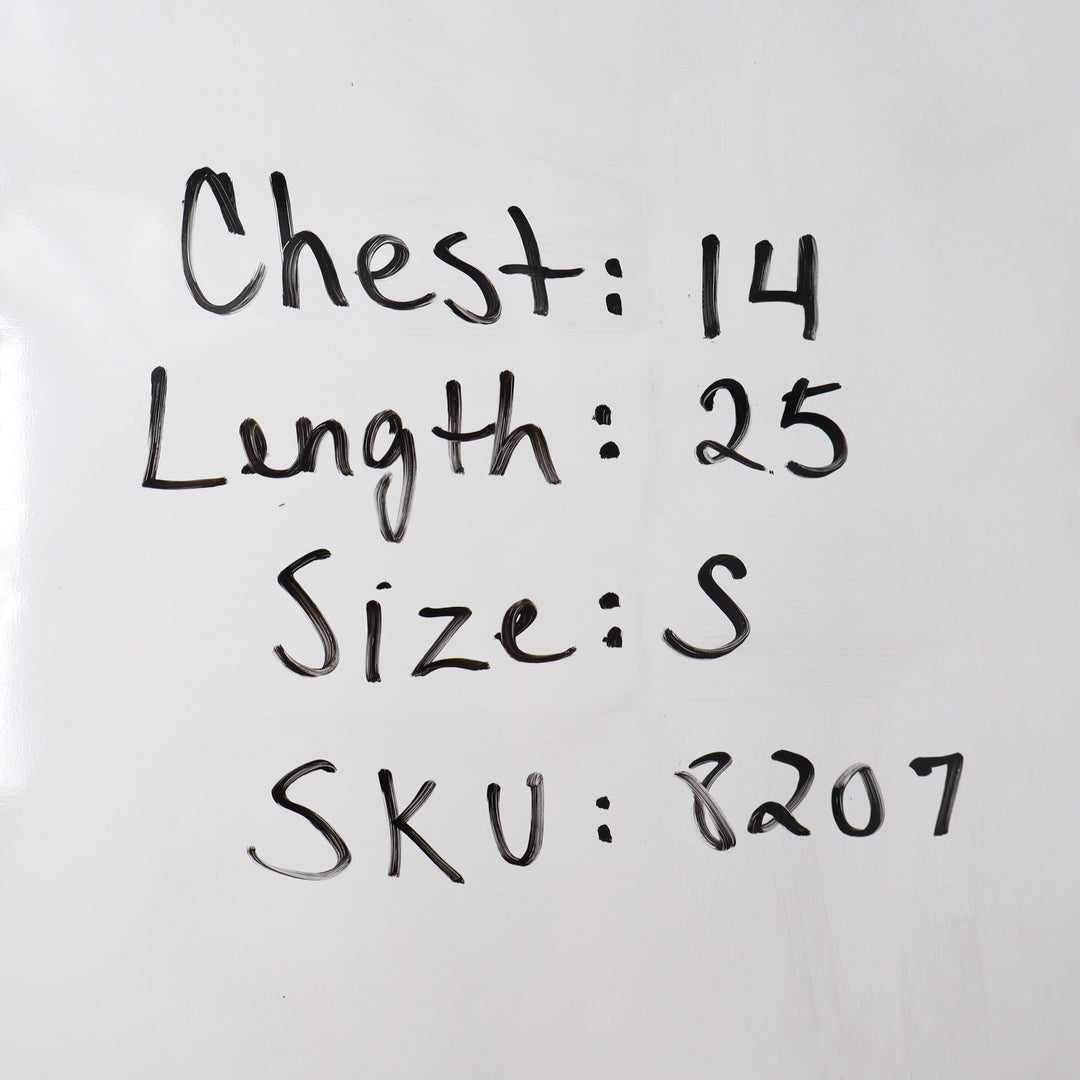 Chest: 14
Length: 25
Size: S
SKU: 8207